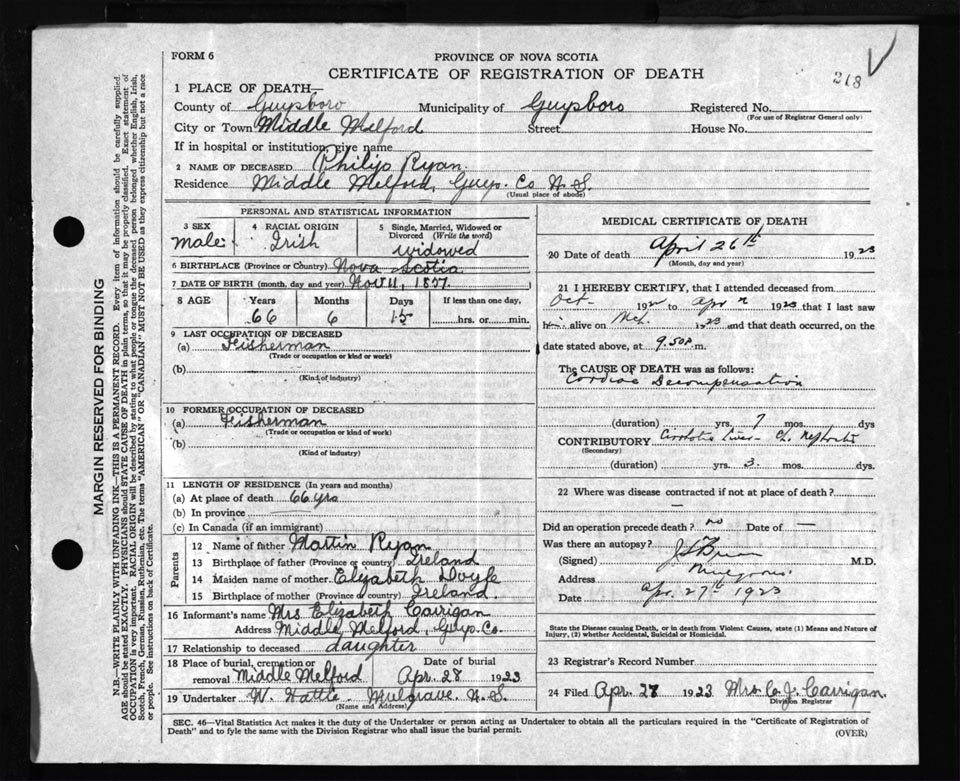 FORM 6
PROVINCE OF NOVA SCOTIA
CERTIFICATE OF REGISTRATION OF DEATH
218
1 PLACE OF DEATH—
County of Guysboro Municipality of Guysboro Registered No.
(For use of Registrar General only)
City or Town Middle Melford Street House No.
If in hospital or institution, give name
2 NAME OF DECEASED Philip Ryan.
Residence Middle Melford, Guys. Co N.S.
(Usual place of abode)
PERSONAL AND STATISTICAL INFORMATION
3 SEX
Male
4 RACIAL ORIGIN
Irish
5 Single, Married, Widowed or Divorced (Write the word)
widowed
6 BIRTHPLACE (Province or Country) Nova Scotia
7 DATE OF BIRTH (month, day and year) Nov 11, 1857.
8 AGE Years Months Days If less than one day,
66 6 15 hrs. or min.
9 LAST OCCUPATION OF DECEASED
(a) Fisherman
(Trade or occupation or kind or work)
(b)
(Kind of industry)
10 FORMER OCCUPATION OF DECEASED
(a) Fisherman
(Trade or occupation or kind or work)
(b)
(Kind of industry)
11 LENGTH OF RESIDENCE (In years and months)
(a) At place of death 66 yrs
(b) In province
(c) In Canada (if an immigrant)
Parents
12 Name of father Martin Ryan
13 Birthplace of father (Province or country) Ireland
14 Maiden name of mother Elizabeth Doyle
15 Birthplace of mother (Province or country) Ireland.
16 Informant's name Mrs. Elizabeth Carrigan
Address Middle Melford, Guys. Co.
17 Relationship to deceased daughter
18 Place of burial, cremation or removal Middle Melford Date of burial Apr. 28 1923
19 Undertaker W. Mulgrave. N.S.
(Name and Address)
MEDICAL CERTIFICATE OF DEATH
20 Date of death April 26th 1923
(Month, day and year)
21 I HEREBY CERTIFY, that I attended deceased from
Oct- 192 to Apr 1923 that I last saw
him alive on Mch. 1923 and that death occurred, on the
date stated above, at 9.50 P. m.
The CAUSE OF DEATH was as follows:
Cardiac Decompensation
(duration) yrs. 7 mos. dys
CONTRIBUTORY Cirrhotic Liver- Ch. Nephritis
(Secondary)
(duration) yrs. 3. mos. dys.
22 Where was disease contracted if not at place of death?
—
Did an operation precede death? no Date of —
Was there an autopsy?
(Signed) M.D.
Address Mulgrave.
Date Apr. 27th 1923
State the Disease causing Death, or in death from Violent Causes, state (1) Means and Nature of
Injury, (2) whether Accidental, Suicidal or Homicidal.
23 Registrar's Record Number
24 Filed Apr. 28 1923 Mrs. C. J. Carrigan.
Division Registrar
SEC. 46—Vital Statistics Act makes it the duty of the Undertaker or person acting as Undertaker to obtain all the particulars required in the "Certificate of Registration of
Death" and to fyle the same with the Division Registrar who shall issue the burial permit.
(OVER)
MARGIN RESERVED FOR BINDING
N.B.—WRITE PLAINLY, WITH UNFADING INK—THIS IS A PERMANENT RECORD. Every item of information should be carefully supplied.
AGE should be stated EXACTLY. PHYSICIANS should STATE CAUSE OF DEATH in plain terms, so that it may be properly classified. Exact statement of
OCCUPATION is very important. RACIAL ORIGIN will be described by stating to what people or tongue the deceased person belonged whether English, Irish,
Scotch, French, German, Russian, Ruthenian, etc. The terms "AMERICAN" OR "CANADIAN" MUST NOT BE USED as they express citizenship but not a race
or people. See instructions on back of Certificate.